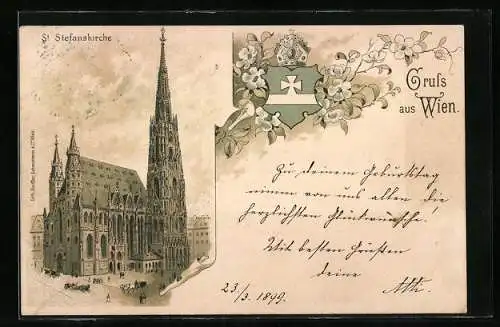 St Stefanskirche
Gruß
aus Wien.
Zu deinem Geburtstag
nimm von uns allen die
herzlichsten Glückwünsche!
Mit besten Grüssen
deine
23./3. 1899.